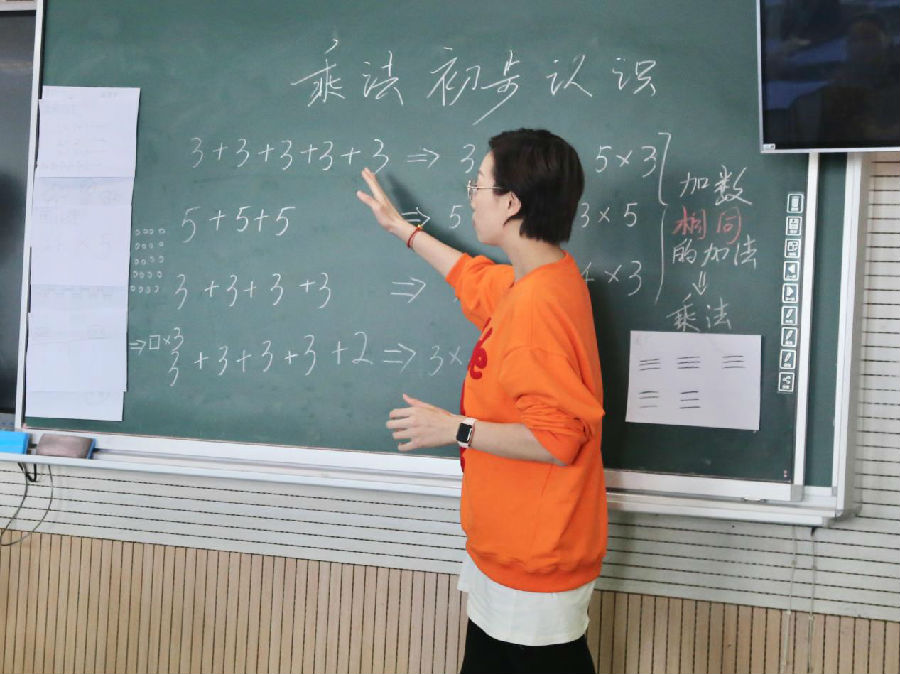 乘法初步认识
3+3+3+3+3 ⇒ 3 5×3
5+5+5 ⇒ 5 3×5
3+3+3+3 ⇒ 4×3
⇒□×3
3+3+3+3+2 ⇒ 3×
加数
相同
的加法
⇓
乘法